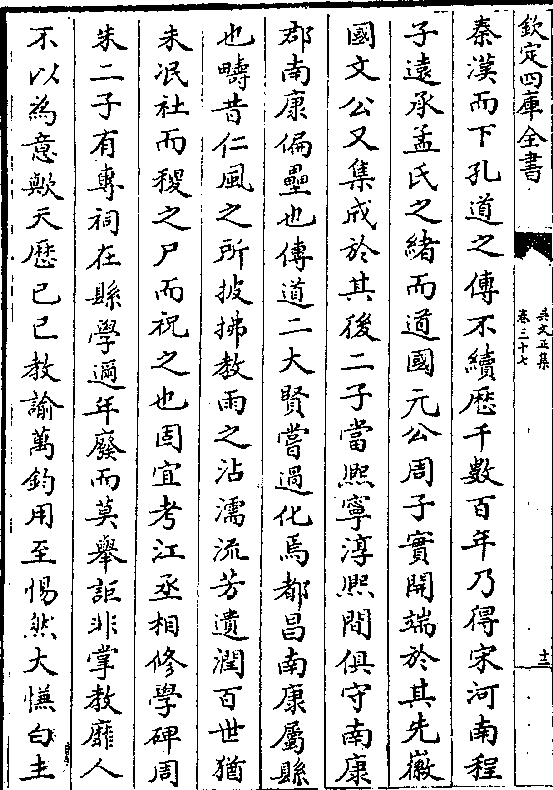 欽定四庫全書
吳文正集
卷三十七
十三
秦漢而下孔道之傳不續歴千數百年乃得宋河南程
子遠承孟氏之緒而道國元公周子實開端於其先徽
國文公又集成於其後二子當熙寧淳熙間俱守南康
郡南康偏壘也傳道二大賢嘗過化焉都昌南康屬縣
也疇昔仁風之所披拂教雨之沾濡流芳遺潤百世猶
未泯社而稷之尸而祝之也固宜考江丞相修學碑周
朱二子有專祠在縣學邇年廢而莫舉詎非掌教靡人
不以為意歟天歴己巳教諭萬鈞用至惕然大憮白主